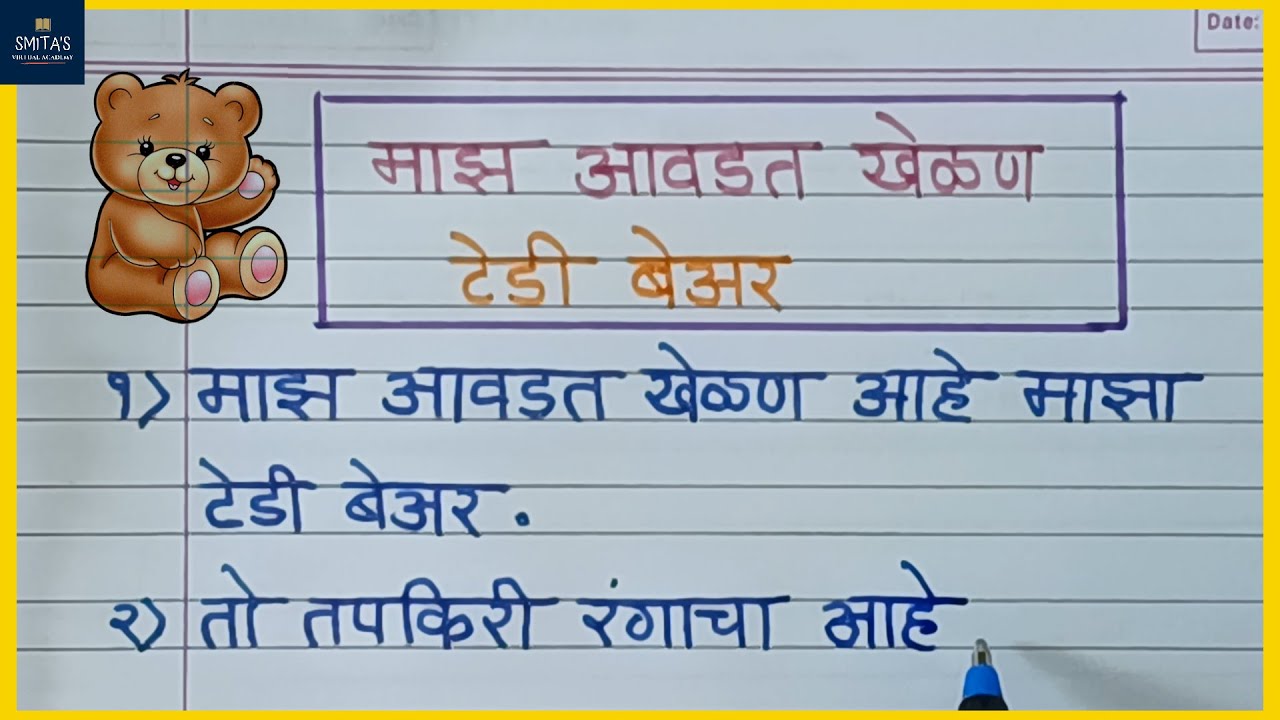 SMITA'S
VIRTUAL ACADEMY
Date:
माझ आवडत खेळण
टेडी बेअर
१) माझ आवडत खेळण आहे माझा
टेडी बेअर.
२) तो तपकिरी रंगाचा आहे